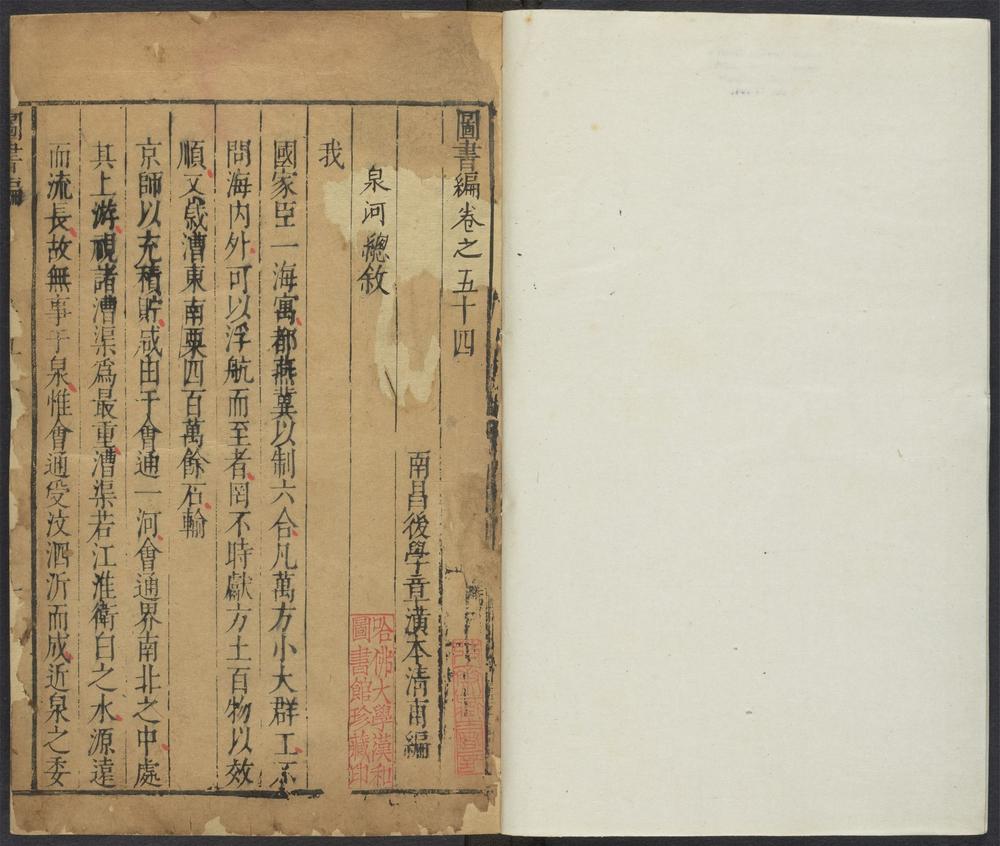 圖書編卷之五十四
南昌後學章潢本清甫編
泉河總敘
我
國家臣一海寓都燕冀以制六合凡萬方小大群工不
問海內外可以浮航而至者罔不時獻方土百物以效
順又歲漕東南粟四百萬餘石輸
京師以充積貯咸由于會通一河會通界南北之中處
其上游視諸漕渠爲最重漕渠若江淮衛白之水源遠
而流長故無事于泉惟會通受汶泗沂而成近泉之委
圖書編
哈佛大學漢和
圖書館珍藏印